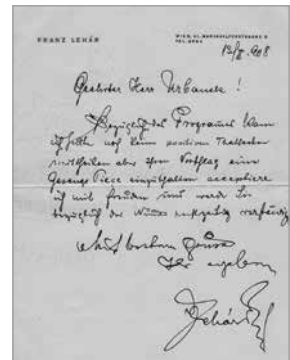 FRANZ LEHÁR
WIEN, VI. MARIAHILFERSTRASSE
TEL.
908
Geehrter Herr Urbanek!
Bezüglich des Programmes kann
ich heute noch keine positiven Thatsachen
mittheilen aber Ihren Vorschlag eine
Gesangs Piece einzuschalten acceptiere
ich mit Freuden und werde Sie
bezüglich der rechtzeitig verständig
Mit bestem Grusse
Ihr ergebener
Lehár